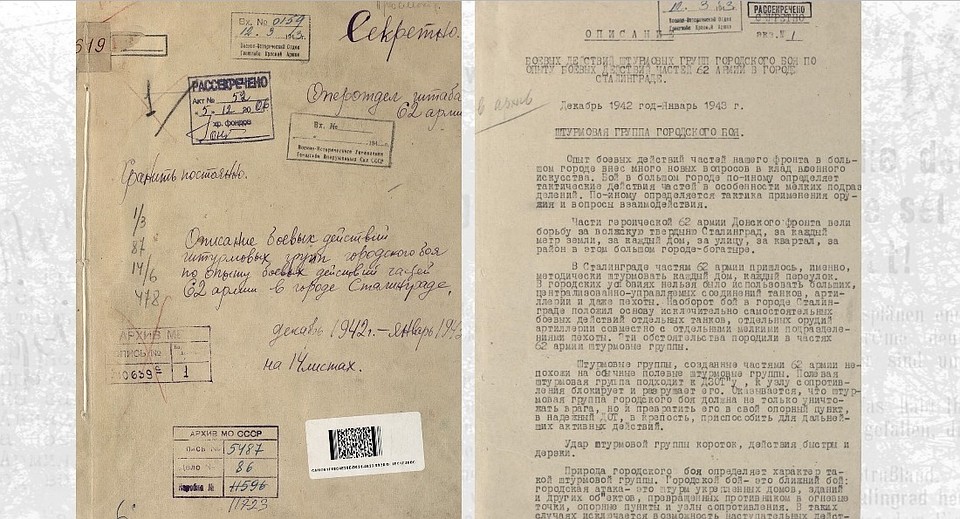 Вх. № 0159
12. 3 1943г.
Военно-Исторический Отдел
Генштаба Красной Армии
Секретно.
519
РАССЕКРЕЧЕНО
Акт № 52
"5" 12 2006
хр. фондов
1
Оперотдел штаба
62 армии
Вх. №
194 г.
Хранить постоянно.
1/3
87
14/6
478
Описание боевых действий
штурмовых групп городского боя
по опыту боевых действий частей
62 армии в городе Сталинграде,
декабрь 1942г.–январь 194
на 14 листах.
АРХИВ МВ
ОПИСЬ №
1
АРХИВ МО СССР
5487
86
11596
11723
12. 3 43
Военно-Исторический Отдел
Генштаба Красной Армии
РАССЕКРЕЧЕНО
экз.№ 1
О П И С А Н И
БОЕВЫХ ДЕЙСТВИЙ ШТУРМОВЫХ ГРУПП ГОРОДСКОГО БОЯ ПО
ОПЫТУ БОЕВЫХ ДЕЙСТВИЙ ЧАСТЕЙ 62 АРМИИ В ГОРОДЕ
СТАЛИНГРАДЕ.
в архив
Декабрь 1942 год-Январь 1943 г.
ШТУРМОВАЯ ГРУППА ГОРОДСКОГО БОЯ.
Опыт боевых действий частей нашего фронта в боль-
шом городе внес много новых вопросов в клад военного
искусства. Бой в большом городе по-иному определяет
тактические действия частей в особенности мелких подраз
делений. По-иному определяется тактика применения ору-
жия и вопросы взаимодействия.
Части героической 62 армии Донского фронта вели
борьбу за волжскую твердыню Сталинград, за каждый
метр земли, за каждый дом, за улицу, за квартал, за
район в этом большом городе-богатыре.
В Сталинграде частям 62 армии пришлось, именно,
методически штурмовать, каждый дом, каждый переулок.
В городских условиях нельзя было использовать больших,
централизованно-управляемых соединений танков, арти-
ллерии и даже пехоты. Наоборот бой в городе Сталин-
граде положил основу исключительно самостоятельных
боевых действий отдельных танков, отдельных орудий
артиллерии совместно с отдельными мелкими подразделе-
ниями пехоты. Эти обстоятельства породили в частях
62 армии штурмовые группы.
Штурмовые группы, созданные частями 62 армии не-
похожи на обычные полевые штурмовые группы. Полевая
штурмовая группа подходит к ДЗОТ"у, к узлу сопротив-
ления блокирует и разрушает его. Оказывается, что штур-
мовая группа городского боя должна не только уничто-
жать врага, но и превратить его в свой опорный пункт,
в надежный ДОТ, в крепость, приспособить для дальней-
ших активных действий.
Удар штурмовой группы короток, действия быстры и
дерзки.
Природа городского боя определяет характер та-
кой штурмовой группы. Городской бой- это ближний бой;
городская атака- это штурм укрепленных домов, зданий
и других об"ектов, превращенных противником в огневые
точки, опорные пункты и узлы сопротивления. В таких
случаях исключается возможность наступательных дейст-